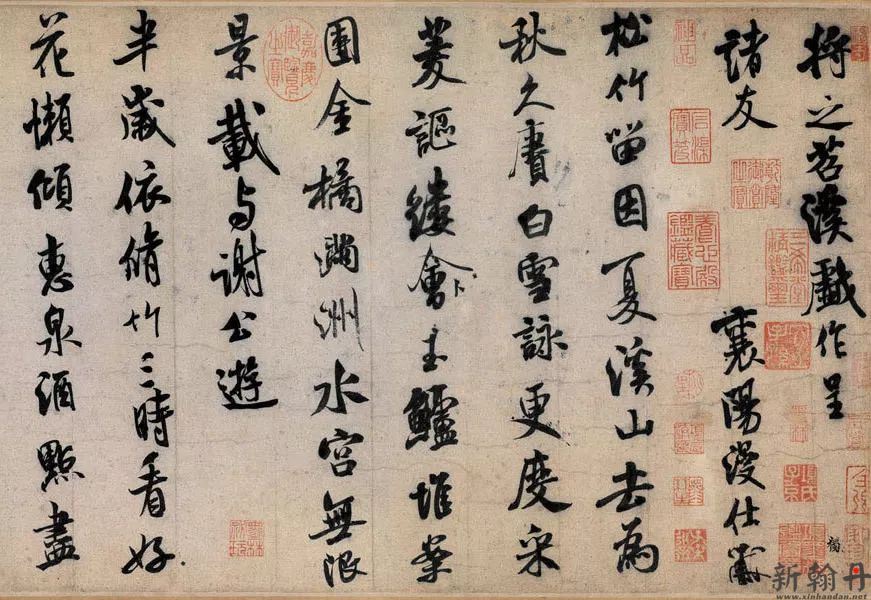 將之苕溪戲作呈
諸友
襄陽漫仕黻
松竹留因夏溪山去為
秋久賡白雪詠更度采
菱謳縷會卜玉鱸堆案
團金橘滿洲水宮無限
景載与謝公遊
半歲依脩竹三時看好
花懶傾惠泉酒點盡
嘉慶御覽之寶
養心殿鑑藏寶
新翰丹
www.xinhandan.net